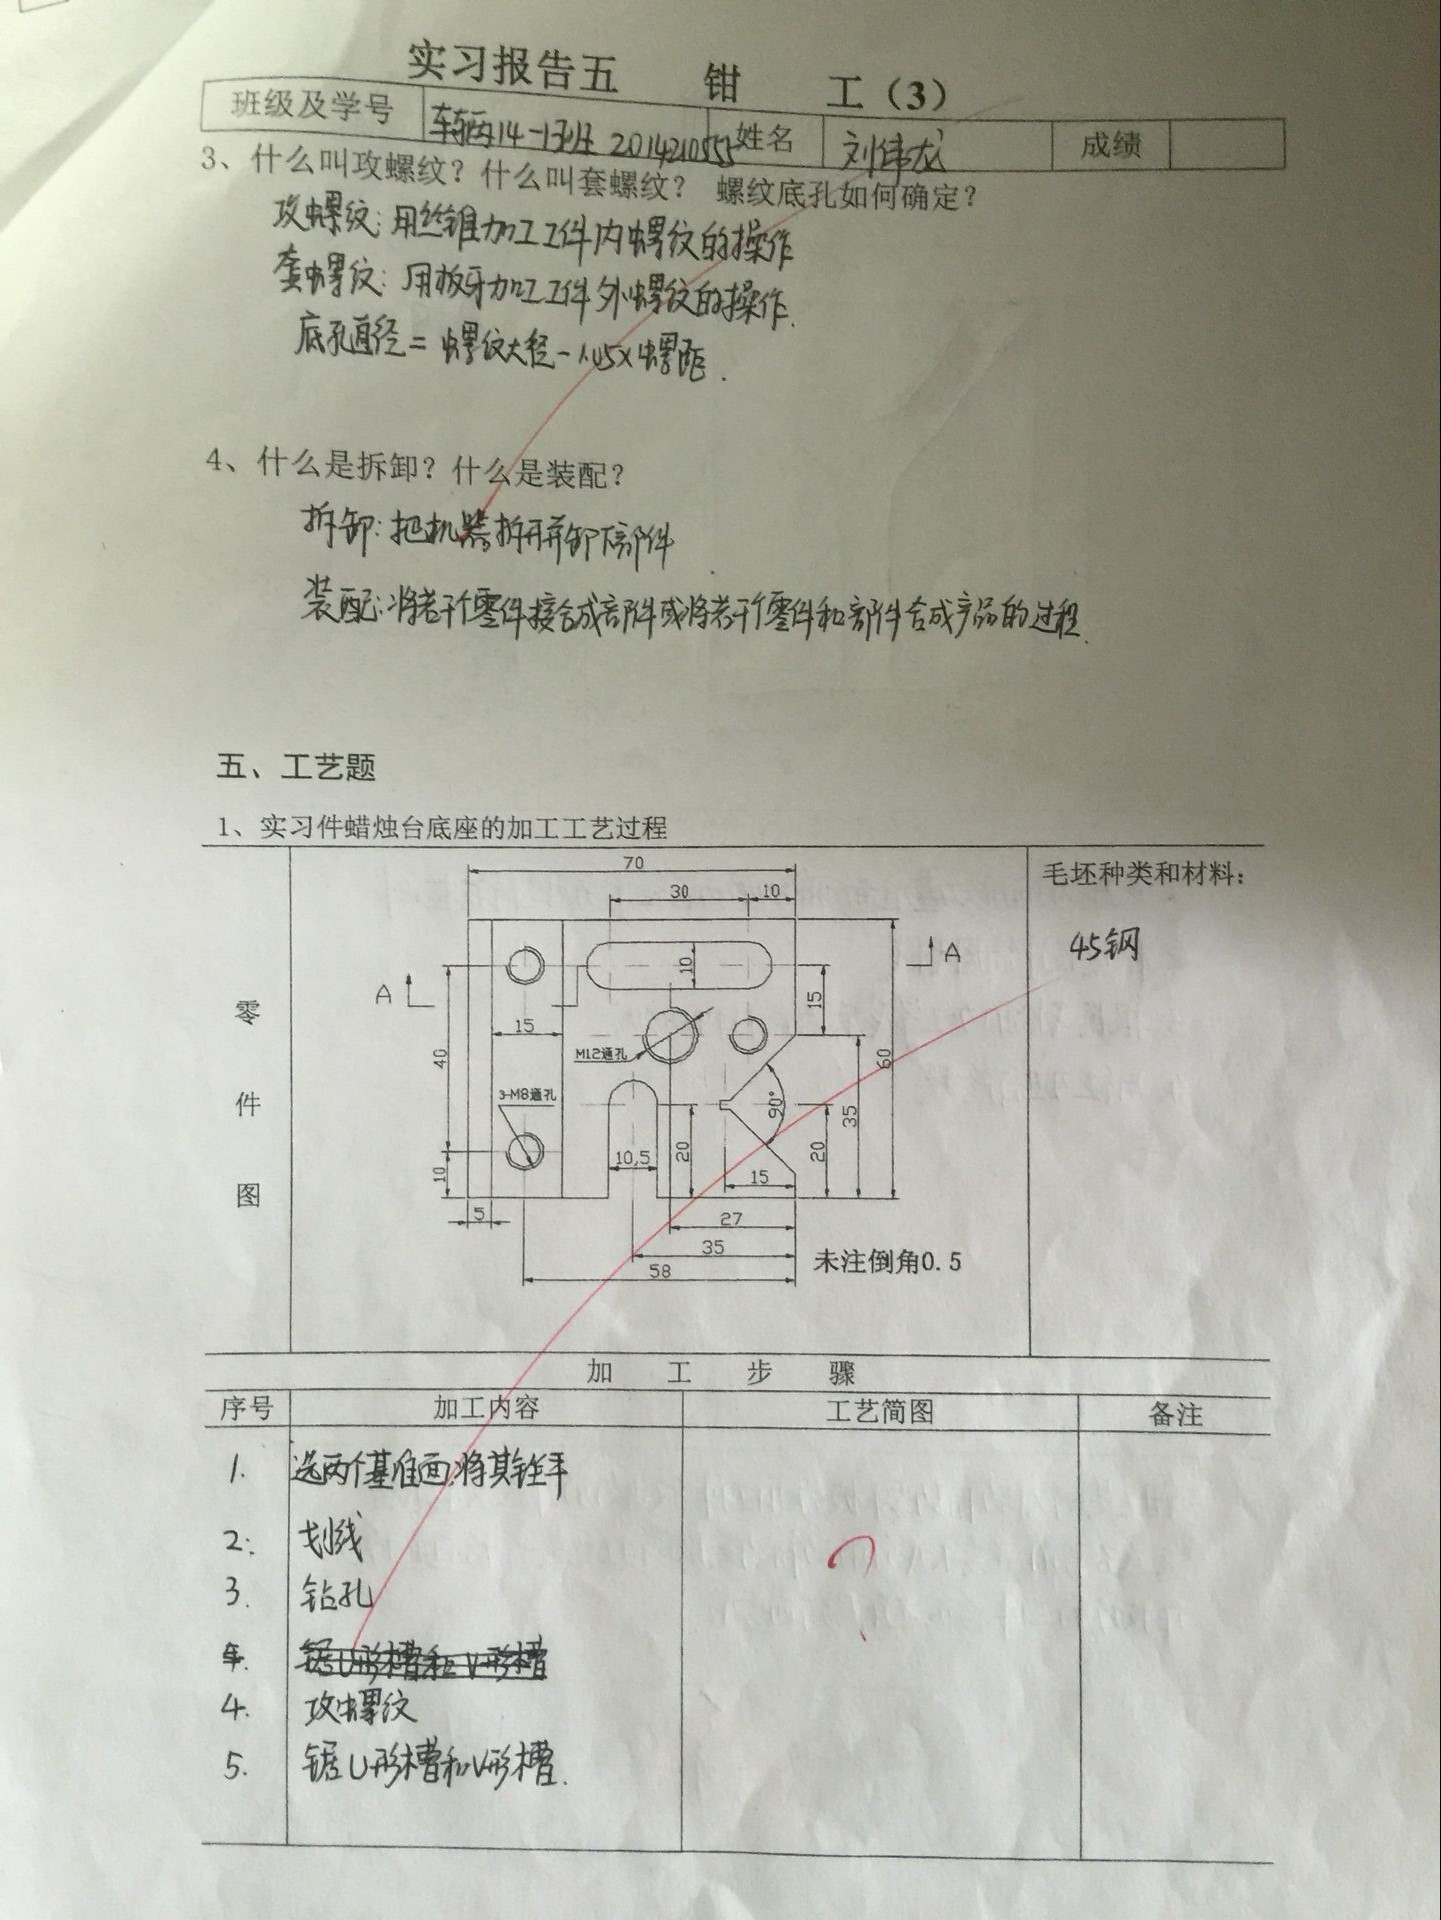 实习报告五 钳 工（3）
班级及学号 车辆14-1班 2014210555 姓名 刘伟龙 成绩
3、什么叫攻螺纹？什么叫套螺纹？ 螺纹底孔如何确定？
攻螺纹：用丝锥加工工件内螺纹的操作
套螺纹：用板牙加工工件外螺纹的操作.
底孔直径＝螺纹大径－1.05×螺距.
4、什么是拆卸？什么是装配？
拆卸：把机器拆开并卸下部件
装配：将若干个零件接合成部件或将若干个零件和部件合成产品的过程.
五、工艺题
1、实习件蜡烛台底座的加工工艺过程
零件图
70
30 10
A A
10
15
15
40
M12通孔
60
3-M8通孔
90°
35
10,5 20 20
10
15
5
27
35
58
未注倒角0.5
毛坯种类和材料：
45钢
加 工 步 骤
序号 加工内容 工艺简图 备注
1. 选两个基准面,将其锉平
2. 划线
3. 钻孔
锯U形槽和V形槽
4. 攻螺纹
5. 锯U形槽和V形槽.
?